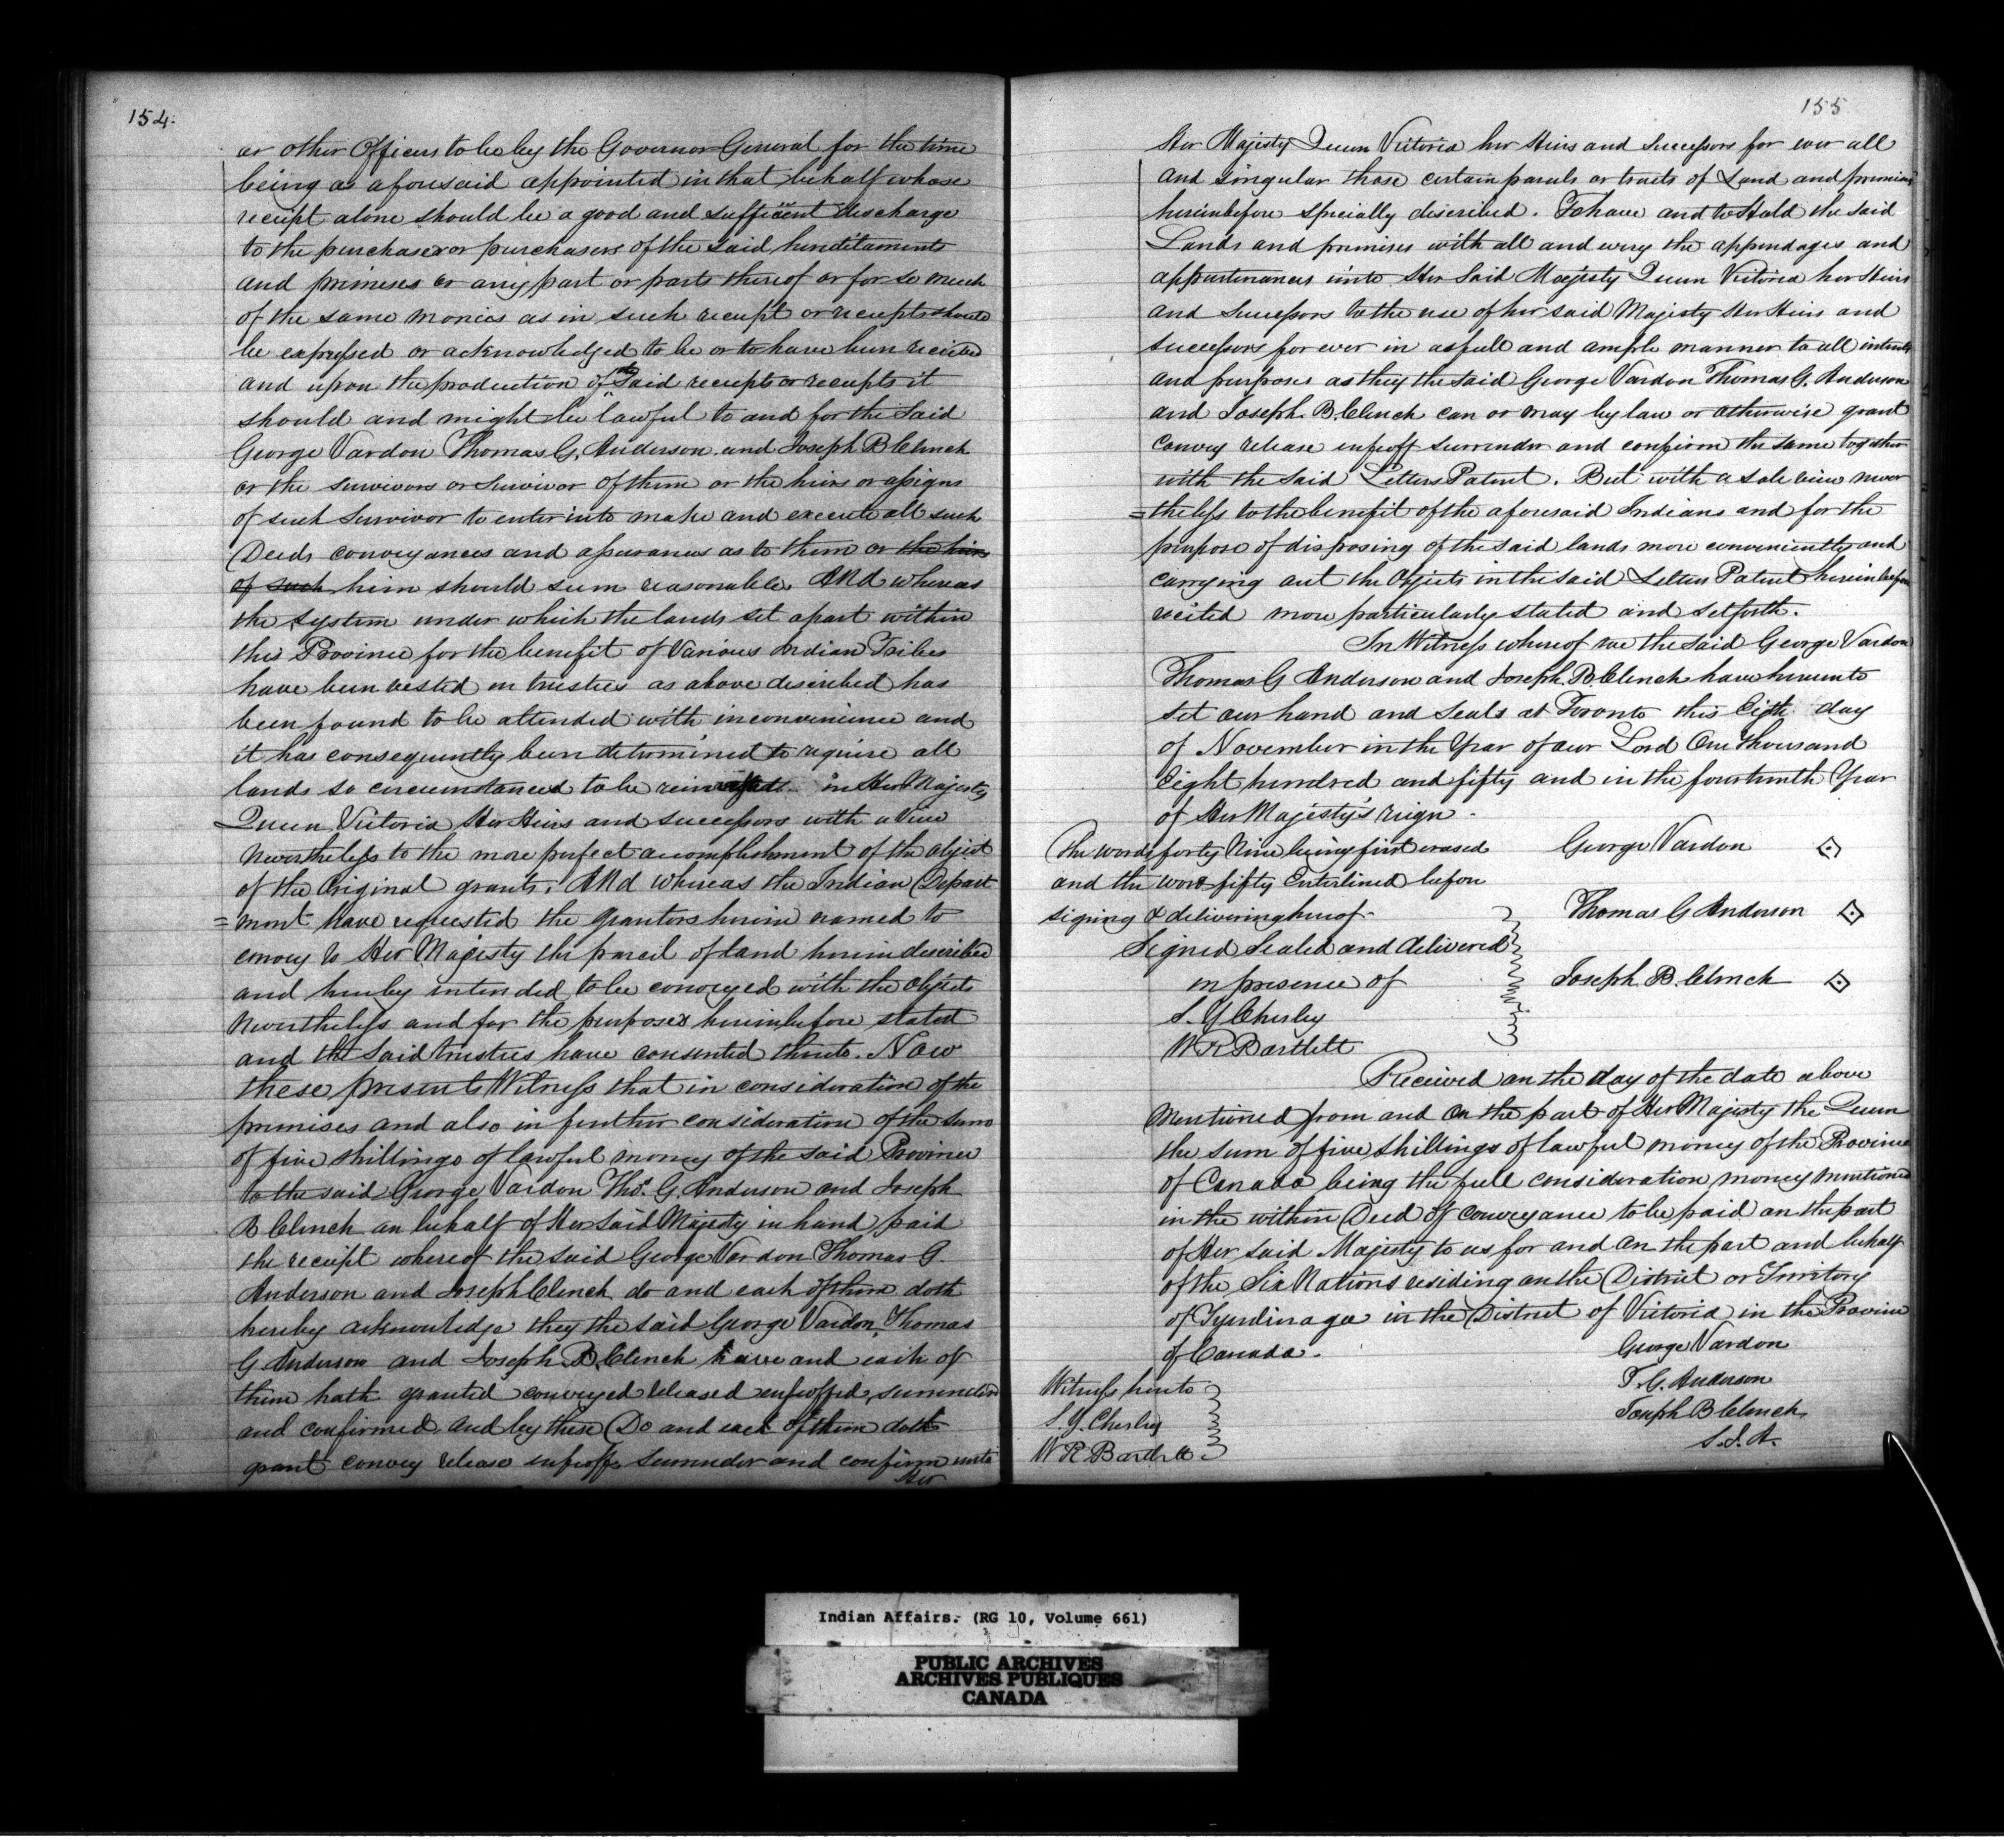 154.
or other Officers to be by the Governor General for the time
being as aforesaid appointed in that behalf whose
receipt alone should be a good and sufficient discharge
to the purchaser or purchasers of the said hereditaments
and premises or any part or parts thereof or for so much
of the same monies as in such receipt or receipts should
be expressed or acknowledged to be or to have been received
and upon the production of the Said receipt or receipts it
should and might be lawful to and for the Said
George Vardon Thomas G. Anderson and Joseph B Clench
or the survivors or Survivor of them or the heirs or assigns
of such Survivor to enter into make and execute all such
Deeds conveyances and assurances as to them or the heirs
of such him should seem reasonable. And whereas
the system under which the lands set apart within
this Province for the benefit of Various Indian Tribes
have been vested in trustees as above described has
been found to be attended with inconvenience and
it has consequently been determined to require all
lands so circumstanced to be reinvested in Her Majesty
Queen Victoria Her Heirs and successors with a View
Nevertheless to the more perfect accomplishment of the object
of the Original grants. And whereas the Indian Depart
=ment have requested the grantors herein named to
convey to Her Majesty the parcel of land herein described
and hereby intended to be conveyed with the objects
Nevertheless and for the purposes hereinbefore stated
and the Said trustees have consented thereto. Now
these presents Witness that in consideration of the
premises and also in further consideration of the sum
of five shillings of lawful money of the said Province
to the said George Vardon Thos. G. Anderson and Joseph
B Clench on behalf of Her Said Majesty in hand paid
the receipt whereof the said George Vardon Thomas G.
Anderson and Joseph Clench do and each of them doth
hereby acknowledge they the said George Vardon, Thomas
G Anderson and Joseph B Clench have and each of
them hath granted conveyed released enfeoffed surrendered
and confirmed and by these Do and each of them doth
grant convey release enfeoff Surrender and confirm unto
Her
155
Her Majesty Queen Victoria her Heirs and Successors for ever all
and singular those certain parcels or tracts of Land and premises
hereinbefore specially described. To have and to Hold the said
Lands and premises with all and every the appendages and
appurtenances unto Her Said Majesty Queen Victoria her Heirs
and Successors to the use of her said Majesty Her Heirs and
successors for ever in as full and ample manner to all intents
and purposes as they the Said George Vardon Thomas G. Anderson
and Joseph B. Clench can or may by law or otherwise grant
convey release enfeoff surrender and confirm the same together
with the said Letters Patent. But with a sole view never
=theless to the benefit of the aforesaid Indians and for the
purpose of disposing of the said lands more conveniently and
carrying out the Objects in the said Letters Patent hereinbefore
recited more particularly stated and set forth.
In Witness whereof we the Said George Vardon
Thomas G Anderson and Joseph B Clench have hereunto
set our hand and Seals at Toronto this Eigth day
of November in the Year of our Lord One thousand
Eight hundred and fifty and in the fourteenth Year
of Her Majesty's reign.
The words forty Nine being first erased
and the word fifty Enterlined before
signing & delivering hereof-
George Vardon
Thomas G Anderson
Signed Sealed and delivered
in presence of
Joseph B. Clench
S. Y Chesley
W R Bartlett
Received on the day of the date above
Mentioned from and on the part of Her Majesty the Queen
the sum of five shillings of lawful money of the Province
of Canada being the full consideration money mentioned
in the within Deed of conveyance to be paid on the part
of Her said Majesty to us for and on the part and behalf
of the Six Nations residing on the District or Territory
of Tyendinaga in the District of Victoria in the Province
of Canada.
George Vardon
T. G. Anderson
Joseph B Clench
S. I. A.
Witness hereto
S. Y. Chesley
W R Bartlett
Indian Affairs. (RG 10, Volume 661)
PUBLIC ARCHIVES
ARCHIVES PUBLIQUES
CANADA